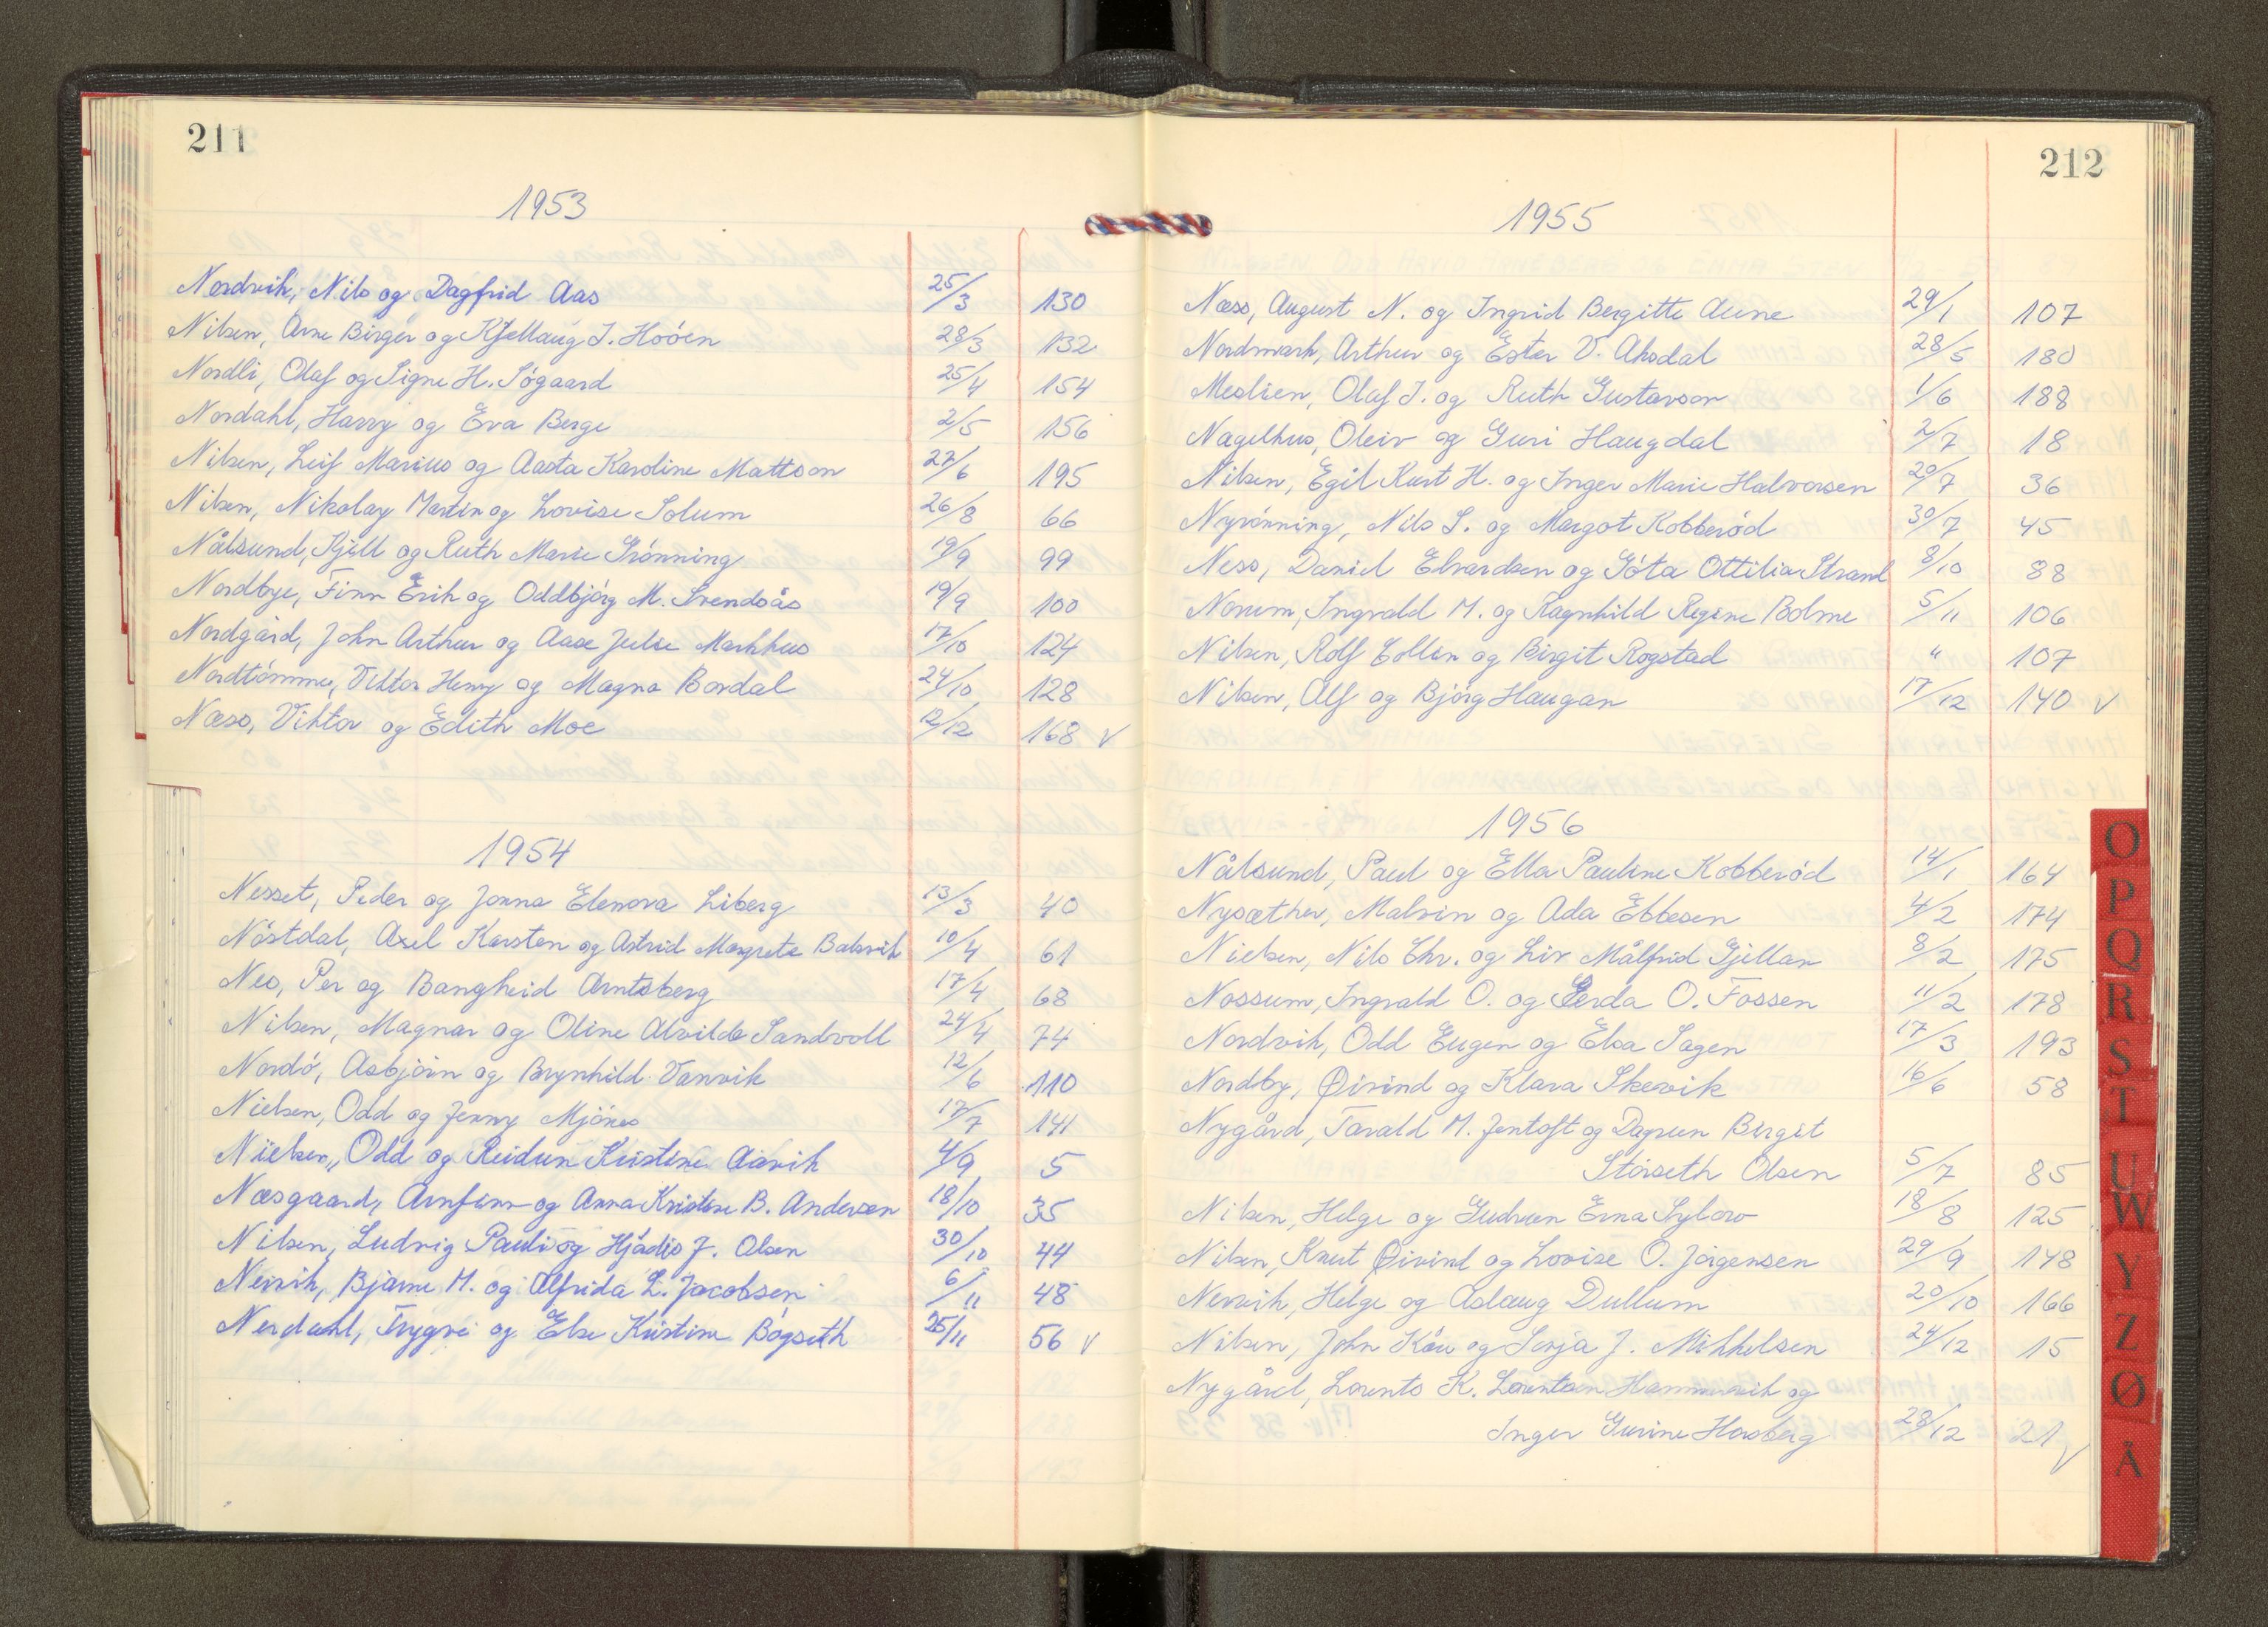 211
1953
Nordvik, Nils og Dagfrid Aas 25/3 130
Nilsen, Arne Birger og Kjellaug J. Hoöen 28/3 132
Nordli, Olaf og Signe H. Sógaard 25/4 154
Nordahl, Harry og Eva Berge 2/5 156
Nilsen, Leif Marius og Aasta Karoline Mattson 27/6 195
Nilsen, Nikolay Martin og Lovise Solum 26/8 66
Nålsund, Kjell og Ruth Marie Grónning 19/9 99
Nordbye, Finn Erik og Oddbjórg M. Svendsås 19/9 100
Nordgård, John Arthur og Aase Julie Markhus 17/10 124
Nordtómme, Viktor Henry og Magna Bordal 24/10 128
Næss, Viktor og Edith Moe 12/12 168 v
1954
Nesset, Peder og Jonna Elenora Liberg 13/3 40
Nóstdal, Axel Karsten og Astrid Margrete Balsvik 10/4 61
Nes, Per og Bangheid Arntsberg 17/4 68
Nilsen, Magnar og Oline Alvilde Sandvoll 24/4 74
Nordó, Asbjórn og Brynhild Vanvik 12/6 110
Nielsen, Odd og Jenny Mjónes 17/7 141
Nielsen, Odd og Reidun Kristine Aasvik 4/9 5
Næsgaard, Arnfinn og Anna Kristine B. Andersen 18/10 35
Nilsen, Ludvig Pauli og Hjódis J. Olsen 30/10 44
Nervik, Bjarne M. og Alfrida L. Jacobsen 6/11 48
Nerdahl, Trygve og Else Kristine Bógseth 25/11 56 v
212
1955
Næss, August N. og Ingrid Bergitte Aune 29/1 107
Nordmark, Arthur og Ester V. Aksdal 28/5 180
Meslien, Olaf J. og Ruth Gustavson 1/6 188
Nagelhus, Oleiv og Guri Haugdal 2/7 18
Nilsen, Egil Kurt H. og Inger Marie Halvorsen 20/7 36
Nyrónning, Nils S. og Margot Kobberód 30/7 45
Ness, Daniel Edvardsen og Góta Ottilia Strand 8/10 88
Norum, Ingvald M. og Ragnhild Regine Bolme 5/11 106
Nilsen, Rolf Collin og Birgit Rogstad " 107
Nilsen, Alf og Bjórg Haugan 17/12 140 v
1956
Nålsund, Paul og Ella Pauline Kobberód 14/1 164
Nysæther, Malvin og Ada Ebbesen 4/2 174
Nielsen, Nils Chr. og Liv Målfrid Gjellan 8/2 175
Nossum, Ingvald O. og Gerda O. Fossen 11/2 178
Nordvik, Odd Eugen og Elsa Sagen 17/3 193
Nordby, Øivind og Klara Skesvik 16/6 58
Nygård, Tarald M. Jentoft og Dagrun Birgit
Stórseth Olsen 5/7 85
Nilsen, Helge og Gudrun Erna 18/8 125
Nilsen, Knut Øivind og Lovise O. Jórgensen 29/9 148
Nervik, Helge og Aslaug Dullum 20/10 166
Nilsen, John Kåre og Sonja J. Mikkelsen 24/12 15
Nygård, Lorents K. Lorentsen Hammervik og
Inger Gurine Hosberg 28/12 21 v
O
P
Q
R
S
T
U
W
Y
Z
Ø
A